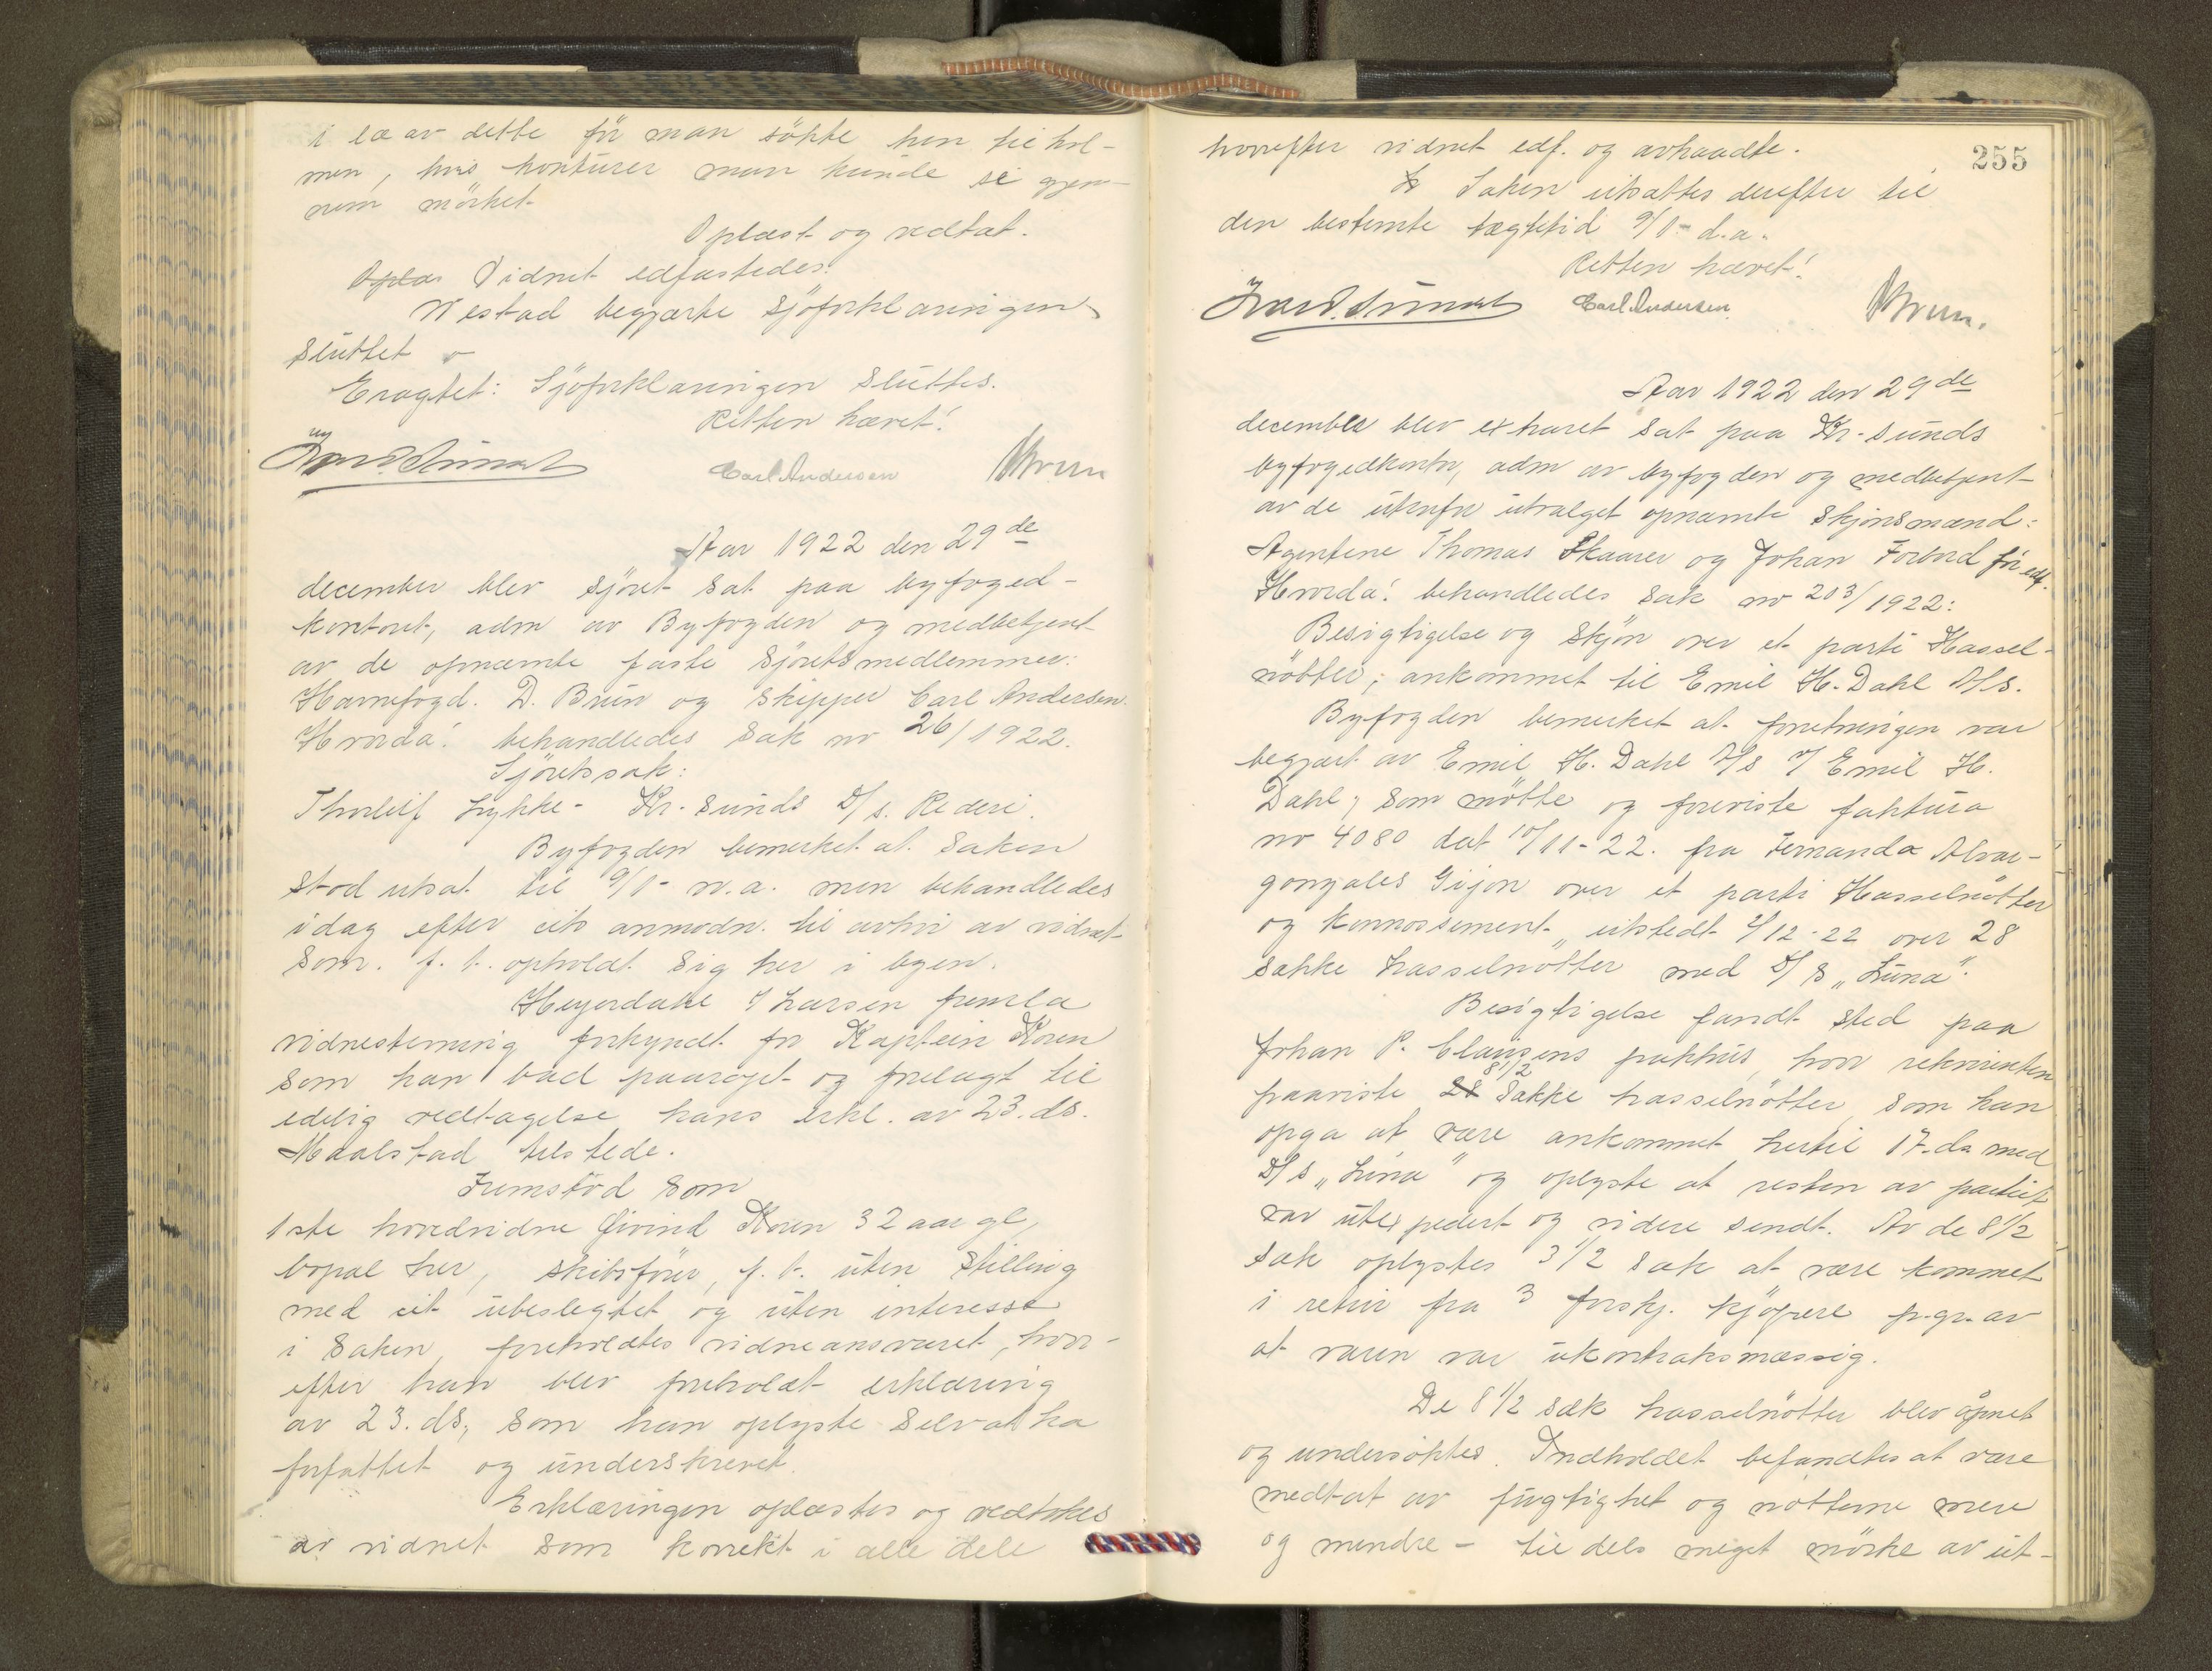 i læ av dette för man sökte hen til hol-
men, hvis konturer man kunde se gjen-
nem mörket.
Oplæst og vedtat.
Oplæs Vidnet edfæstedes.
Westad begjærte sjöforklaringen
sluttet
Eragtet: Sjöforklaringen sluttes.
Retten hævet!
Carl Andersen Brun
Aar 1922 den 29de
december blev sjöret sat paa byfoged-
kontoret, adm av Byfogden og medbetjent
av de opnævnte faste sjöretsmedlemmer:
Havnefogd. D. Brun og skipper Carl Andersen.
Hvorda! behandledes sak nr 26/1922.
Sjöretssak:
Thorleif Lykke - Kr-sunds D/s. Rederi.
Byfogden bemerket at saken
stod utsat til 9/1- n.a. men behandledes
idag efter cits anmodn. til avhør av vidnet
som. f. t. opholdt sig her i byen.
Heyerdahl v/ Larsen fremla
vidnestevning forkyndt for Kaptein Koren
som han bad paaraget og forelagt til
edelig vedtagelse hans erkl. av 23. ds.
Maalstad tilstede.
Fremstod som
1ste hovedvidne Øivind Koren 32 aar gl,
bopæl her, skibsförer, f. t. uten stilling
med cit ubeslegtet og uten interesse
i saken, foreholdtes vidneansvaret, hvor-
efter han blev foreholdt erklæring
av 23. ds, som han oplyste selv at ha
forfattet og underskrevet.
Erklæringen oplæstes og vedtokes
av vidnet som korrekt i alle dele
255
hvorefter vidnet edf. og avhaadte.
Saken utsattes derefter til
den bestemte tægtetid 9/1- d.a.
Retten hævet!
Carl Andersen. Brun.
Aar 1922 den 29de
december blev ex haret sat paa Kr-sunds
byfogedkontor, adm av byfogden og medbetjent
av de utenfor utvalget opnævnte skjönsmænd:
Agentene Thomas Skaarer og Johan Forbord för edf.
Hvorda! behandledes sak nr 203/1922:
Besigtigelse og skjön over et parti Hassel-
nötter; ankommet til Emil H. Dahl A/s.
Byfogden bemerket at forretningen var
begjært av Emil H. Dahl A/s v/ Emil H.
Dahl, som mötte og foreviste faktura
nr 4080 dat 10/11-22. fra Fernanda Alvar-
gonzales Gijon over et parti Hasselnötter
og konnossement utstedt 2/12-22 over 28
sække hasselnötter med D/s "Luna".
Besigtigelse fandt sted paa
Johan P. Clausens pakhus, hvor rekvirenten
8 1/2
paaviste 28 sække hasselnötter, som han
opga at være ankommet hertil 17. ds med
D/s "Luna" og oplyste at resten av partiet
var utexpedert og videre sendt. Av de 8 1/2
sæk oplystes 3 1/2 sæk at være kommet
i retur fra 3 forskj. kjöpere p.gr. av
at varen var ukontraktsmæssig.
De 8 1/2 sæk hasselnötter blev åpnet
og undersöktes. Indholdet befandtes at være
medtat av fugtighet og nötterne mere
og mindre - til dels meget mörke av ut-